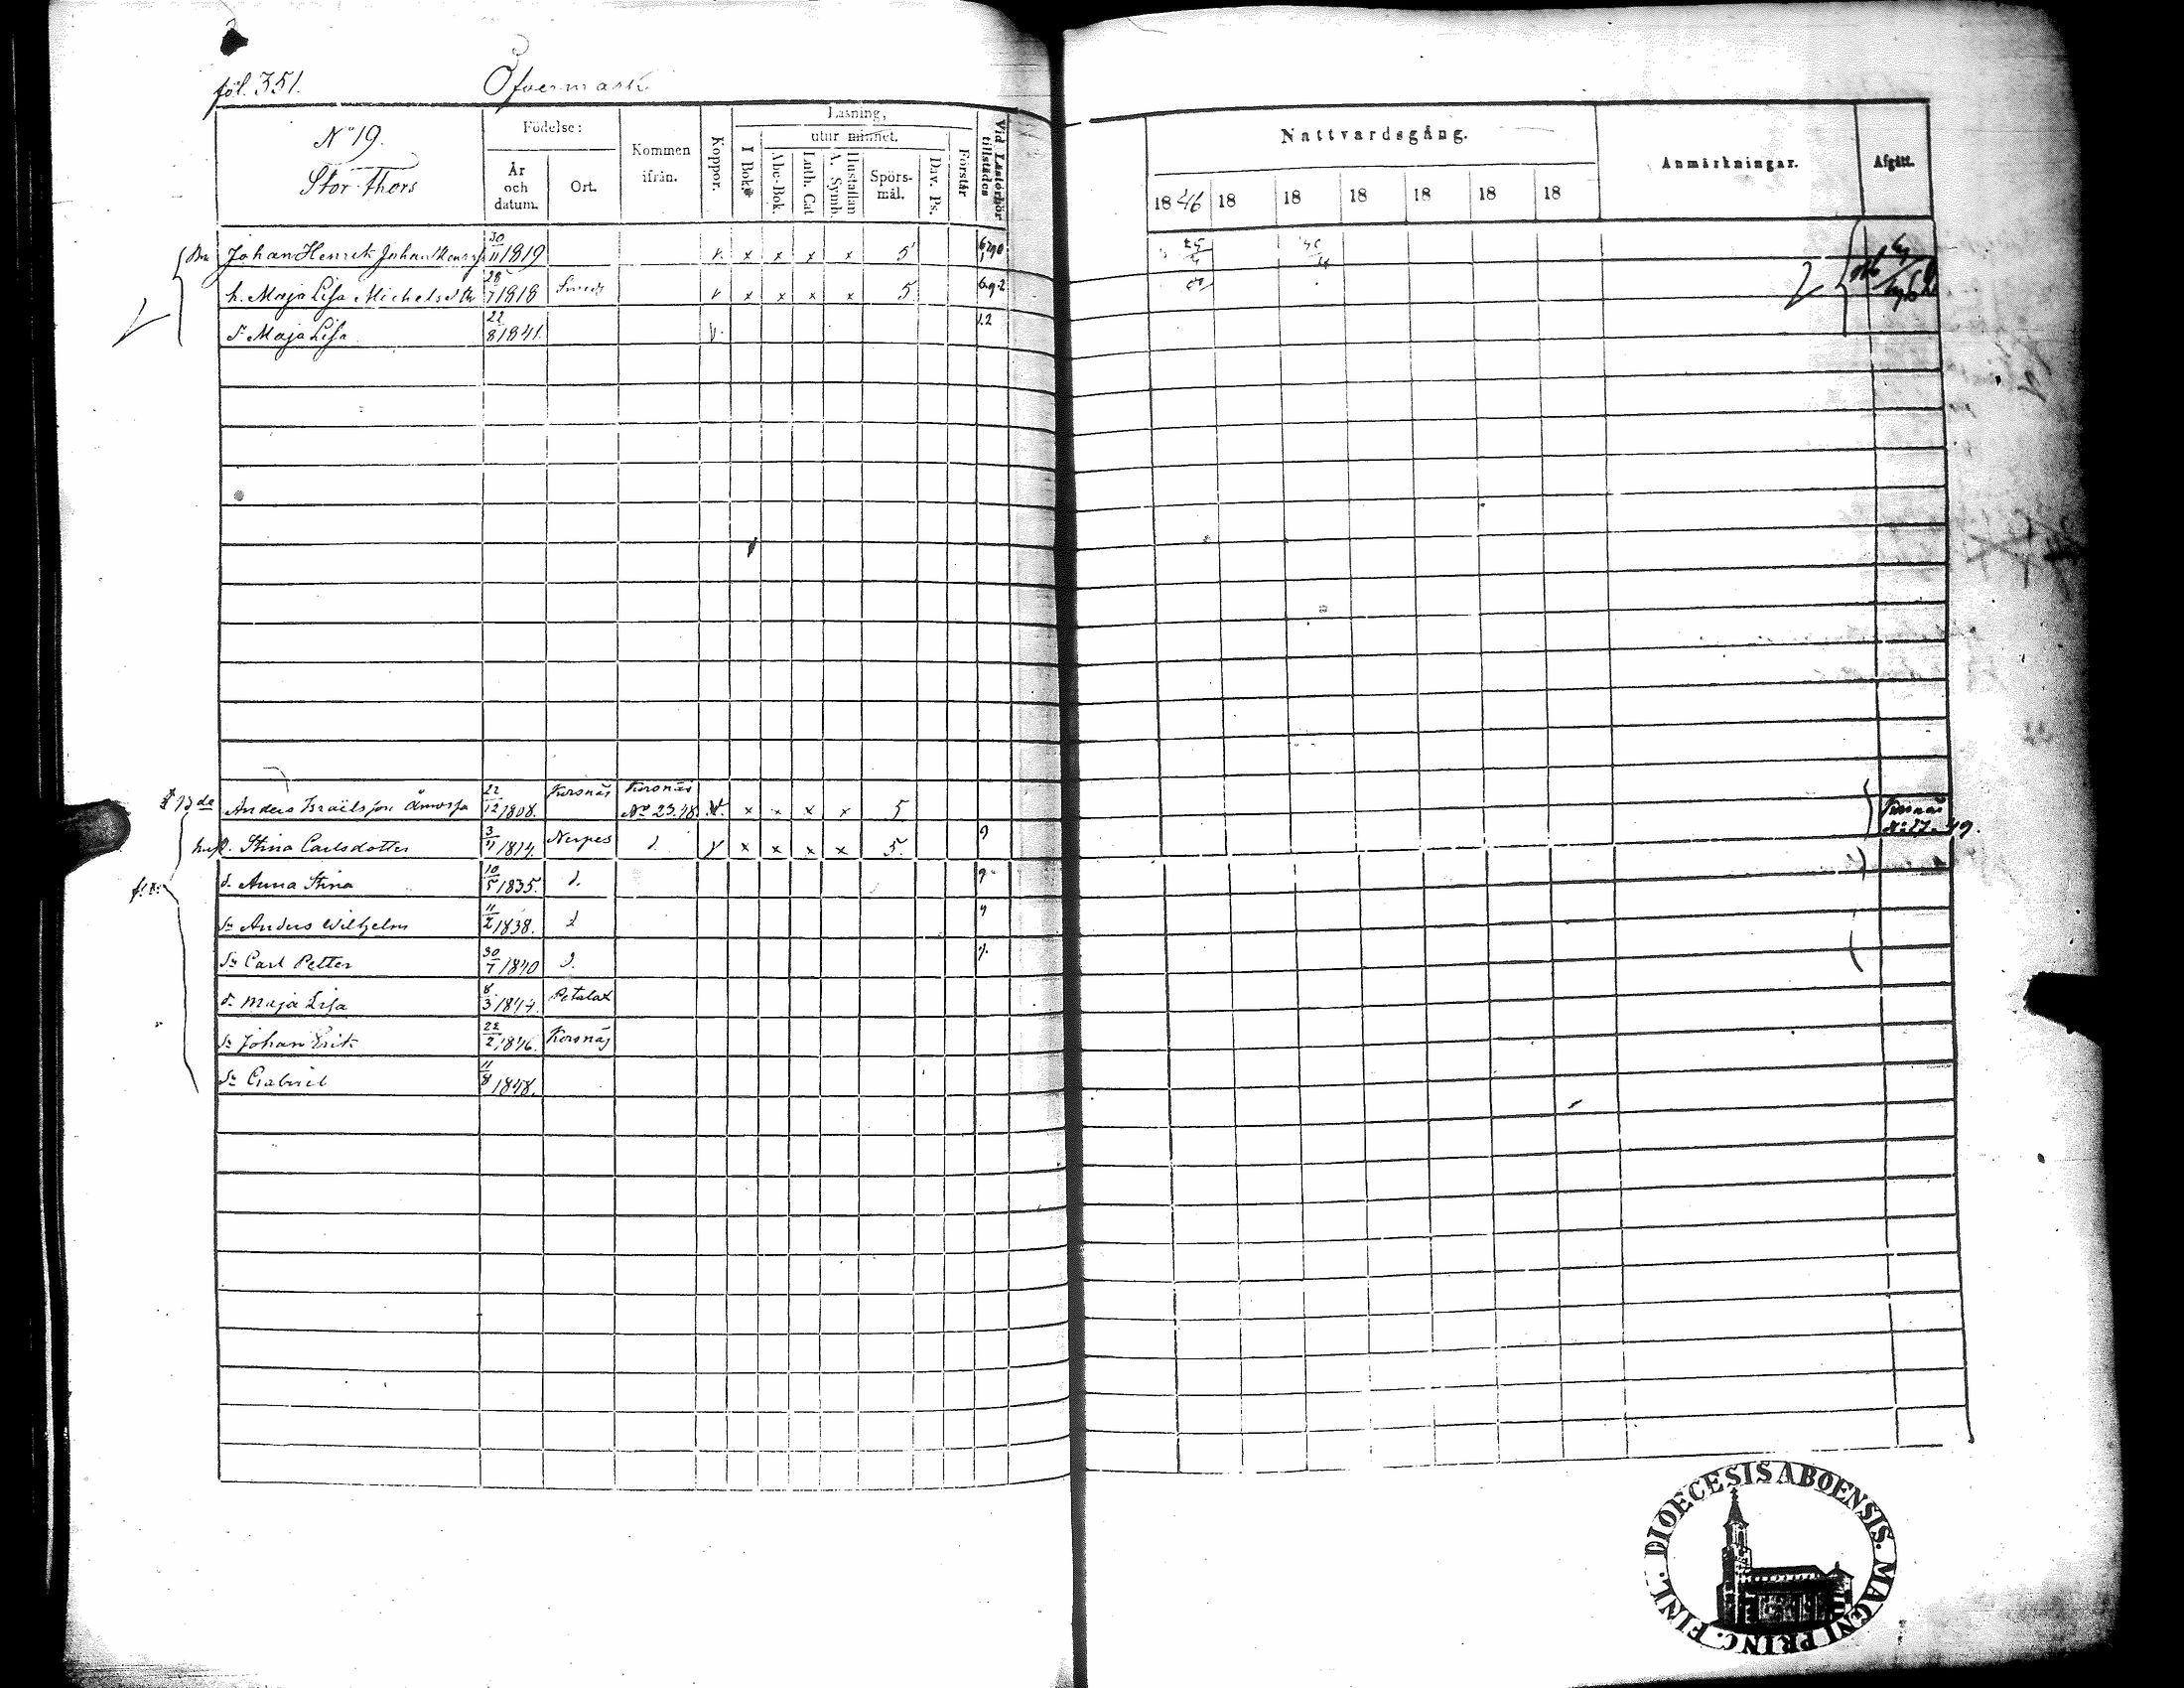 föl. 351.
Öfvermark
No 19.
Stor-Thors
Födelse:
År
och
datum.
Ort.
Kommen
ifrån.
Koppor.
Läsning,
utur minnet.
I Bok.
Abc-Bok.
Luth. Cat
A. Symb.
Hustaflan
Spörs-
mål.
Dav. Ps.
Förstår
Vid Läsförhör
tillstädes
Nattvardsgång.
1846 18 18 18 18 18 18
Anmärkningar.
Afgått.
Johan Henrik 30/11 1819 v. x x x x 5
h. Maja Lisa Michelsdtr 28/7 1818 v x x x x 5
dr Maja Lisa 22/8 1841. v. 1.2
Anders Israëlsson 22/12 1808. Korsnäs Korsnäs No 23.48. x x x x 5
Korsnäs No 27. 49.
hust. Stina Carlsdotter 3/4 1814. Nerpes d. v x x x x 5. 9
d. Anna Stina 10/5 1835. d. 9
Sn Anders Wilhelm 11/2 1838. d 9
Sn Carl Petter 30/7 1840 d. 9.
d. Maja Lisa 8/3 1844. Petalax
Sn Johan Erik 22/2 1846. Korsnäs
Sn Gabriel 11/8 1848.
DIOECESIS ABOENSIS. MAGNI PRINC. FINL.